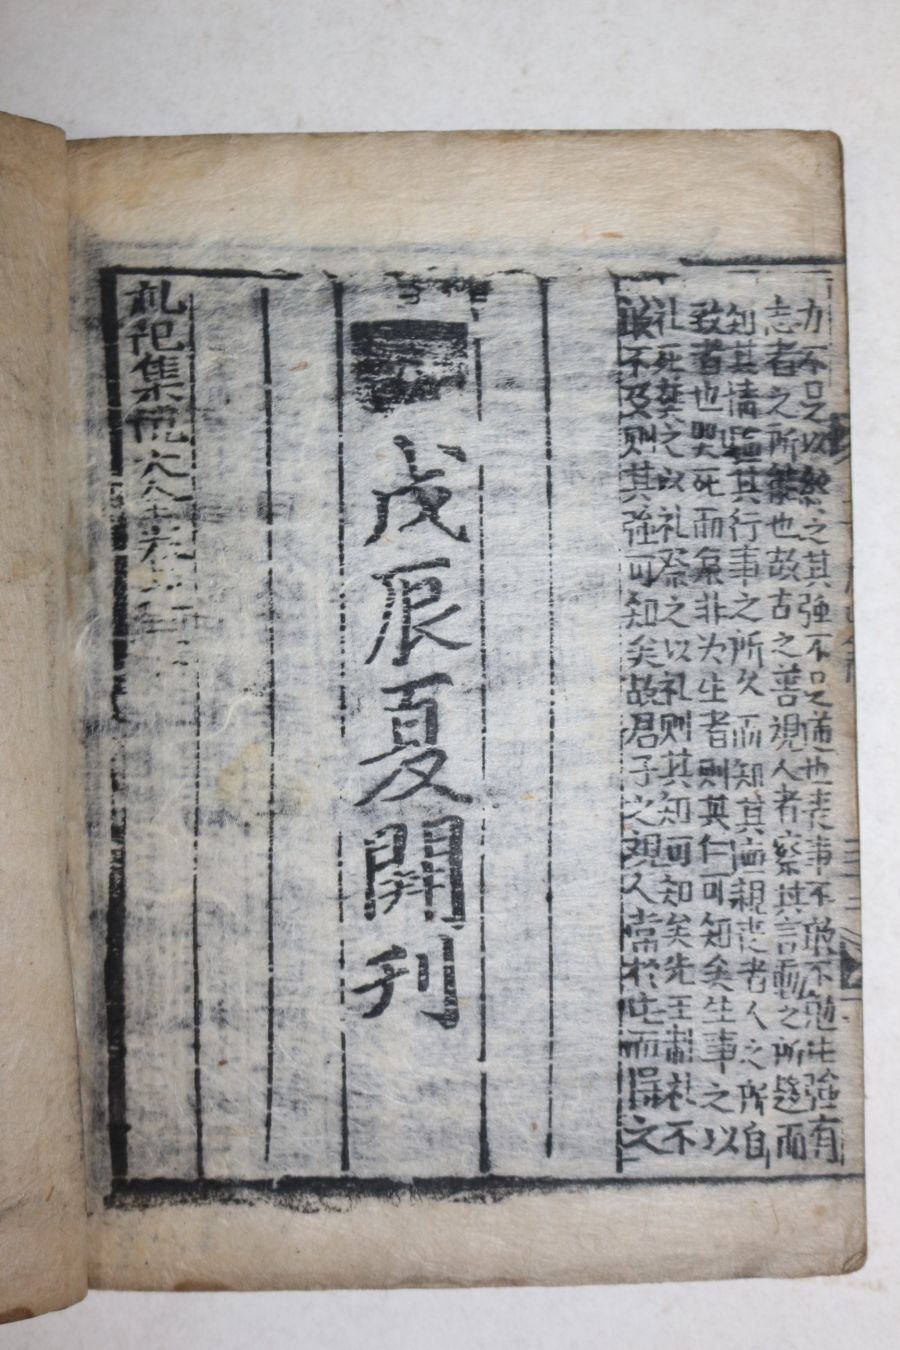 力不足以終之其強不足道也喪事不敢不勉此強有
志者之所能也故古之善視人者察其言動之所趍而
知其情驗其行事之所久而知其德親喪者人之所自
致者也哭死而哀非为生者則其仁可知矣生事之以
礼死葬之以礼祭之以礼則其知可知矣先王制礼不
敢不及則其強可知矣故君子之观人常於此而得之
戊辰夏開刊
礼記集說大全卷之